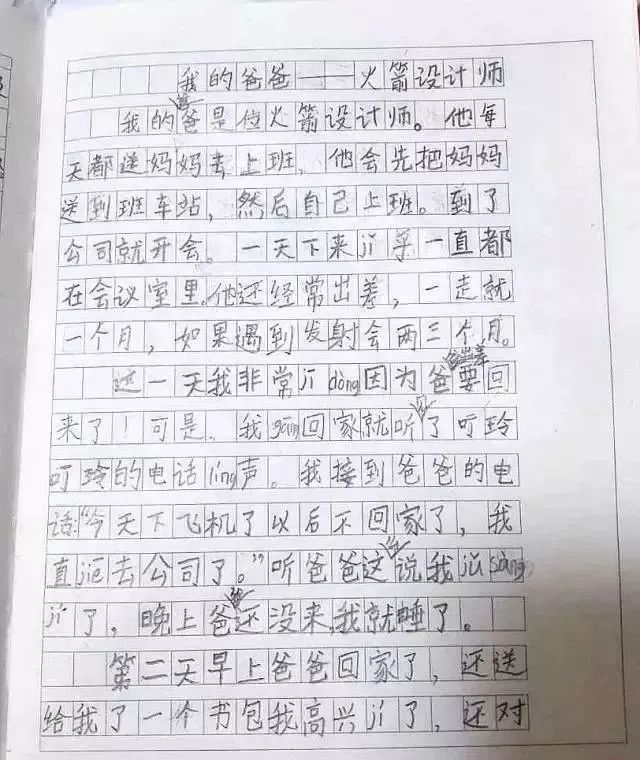 我的爸爸——火箭设计师
我的爸爸是位火箭设计师。他每
天都送妈妈去上班，他会先把妈妈
送到班车站，然后自己上班。到了
公司就开会。一天下来jī乎一直都
在会议室里。他还经常出差，一走就
一个月，如果遇到发射会两三个月。
这一天我非常jī dòng因为爸爸出差要回
来了！可是，我gāng回家就听到了叮玲
叮玲的电话líng声。我接到爸爸的电
话：“今天下飞机了以后不回家了，我
直jiē去公司了。”听爸爸这么说我jǔ sàng
jí了，晚上爸爸还没来，我就睡了。
第二天早上爸爸回家了，还送
给我了一个书包我高兴jí了，还对